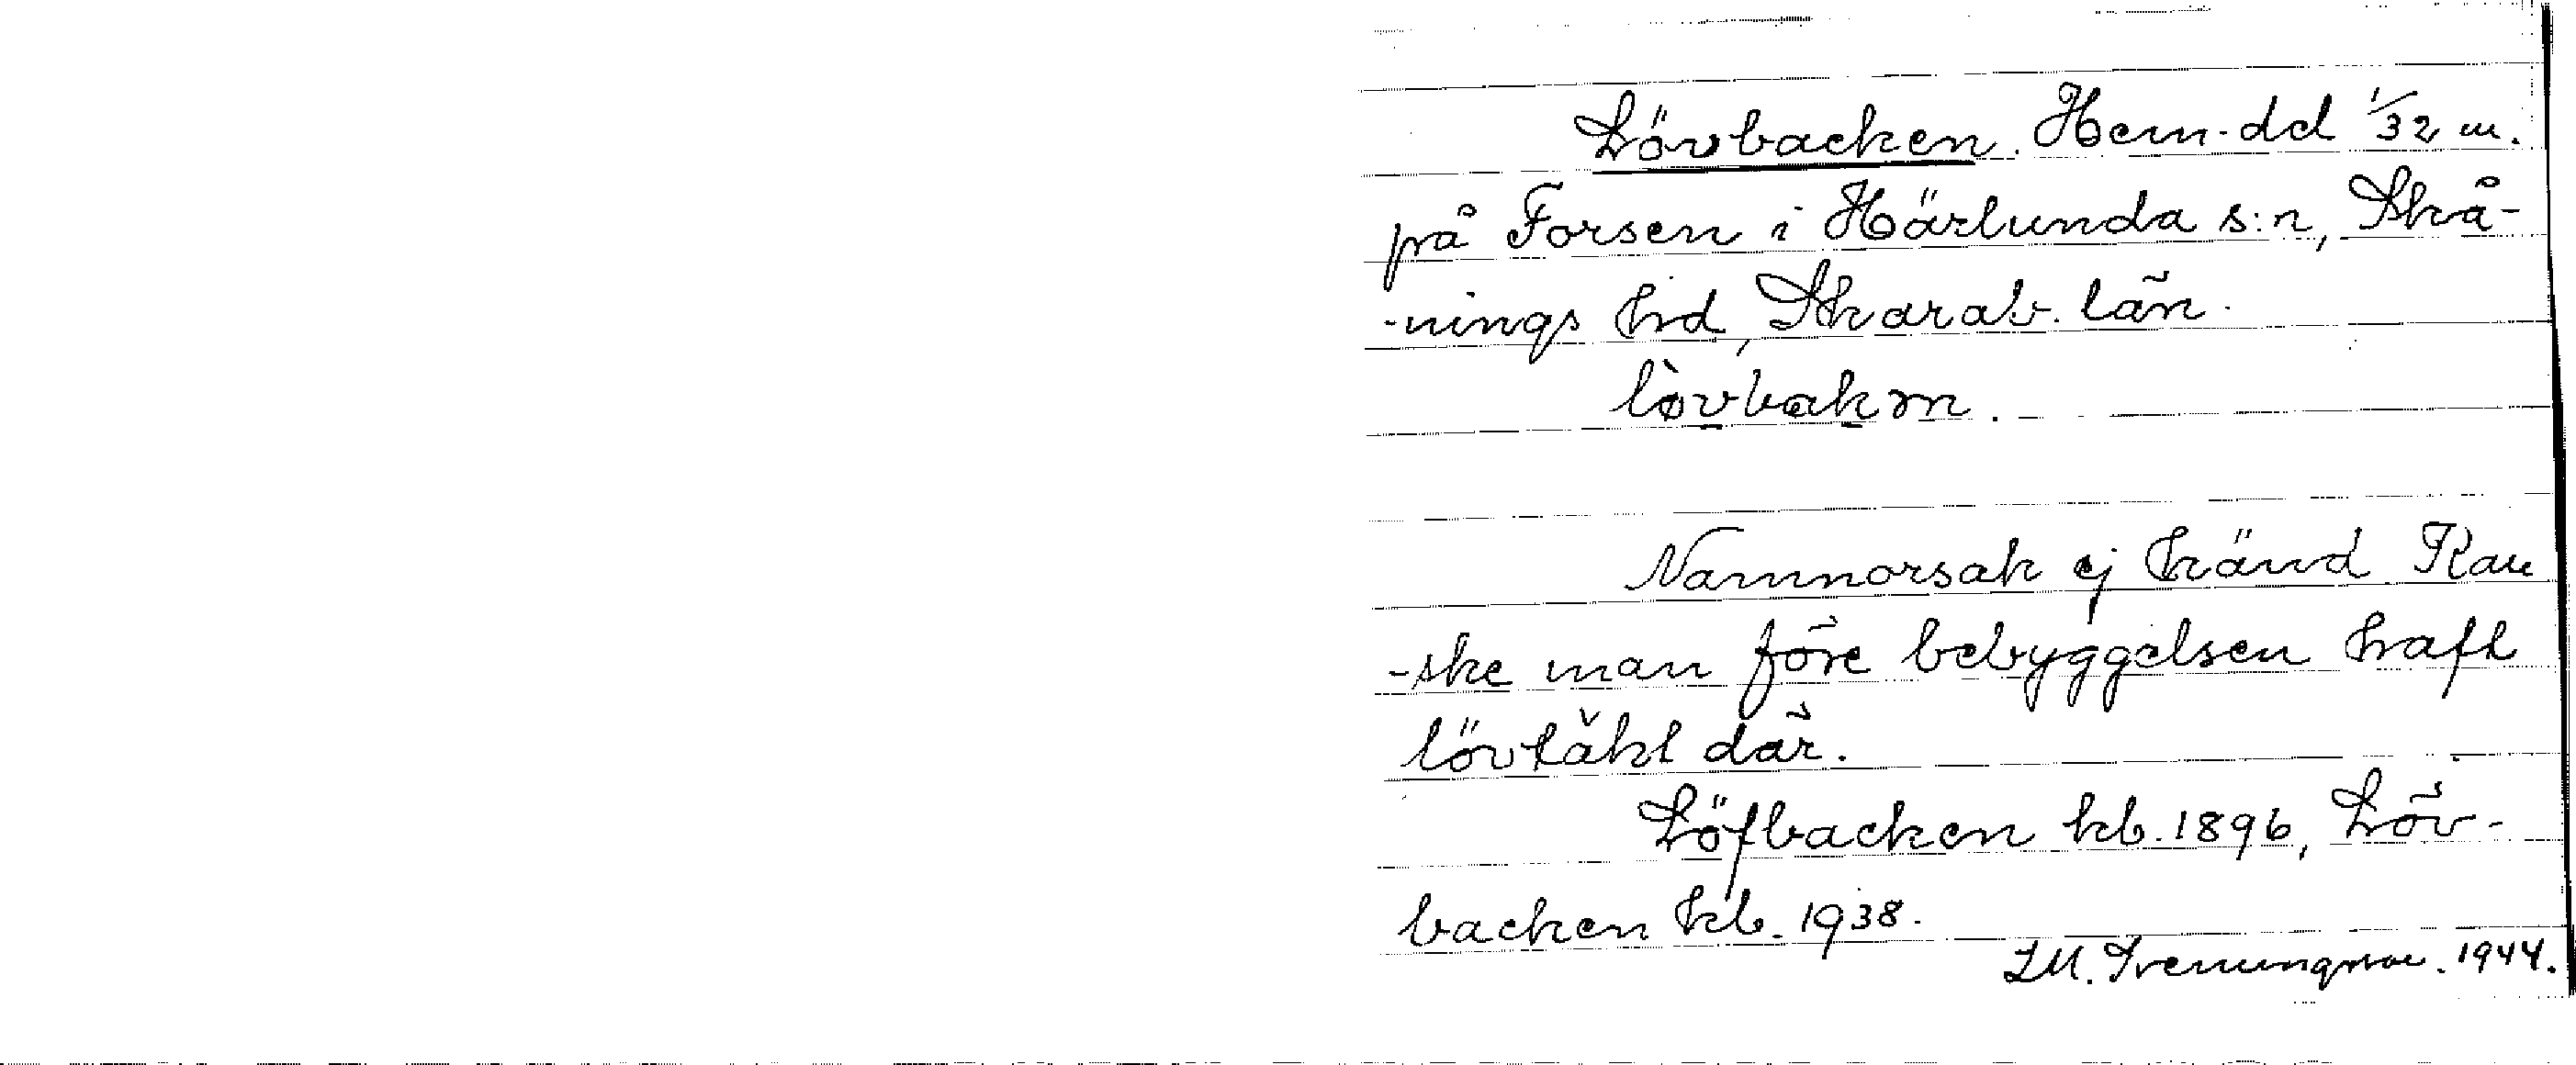 Lövbacken. Hem-del 1/32 m.
på Forsen i Härlunda s:n, Skå-
-nings hrd, Skarab. län.
lòvbakən.
Namnorsak ej känd Kan
-ske man före bebyggelsen haft
lövtäkt där.
Löfbacken kb. 1896, Löv-
backen kb. 1938.
LM. Svenungsson. 1944.